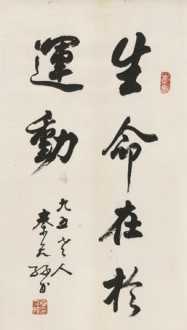 生命在於
運動
九五老人